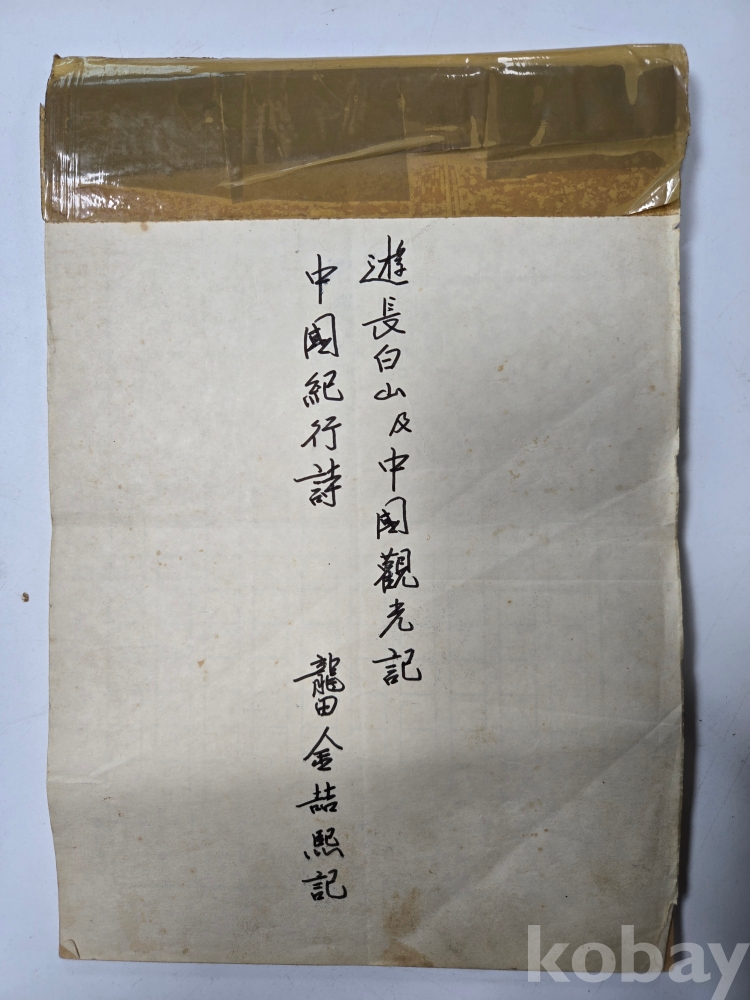 遊長白山及中國觀光記
中國紀行詩 龍田金喆熙記
kobay